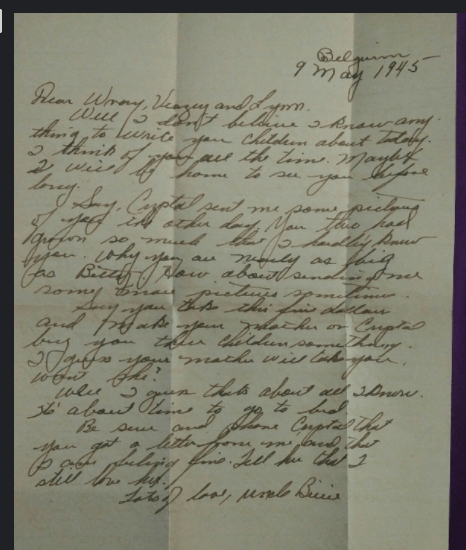 Belguim
9 May 1945
Dear Wrory, and Lynn.
Well I don't believe I know any-
thing to write you children about today.
I think of you all the time. Maybe
I will be home to see you before
long.
Say, Crystal sent me some pictures
of you the other day. You two had
grown so much that I hardly knew
you. Why you are nearly as big
as Billy. How about sending me
some more pictures sometime.
Say you take this five dollars
and make your mother or Crystal
buy you three children something.
I guess your mother will take you.
Wont she?
Well I guess thats about all I know.
Its about time to go to bed
Be sure and phone Crystal that
you got a letter from me and that
I am feeling fine. Tell her that I
still love her.
Lots of love, Uncle Billie